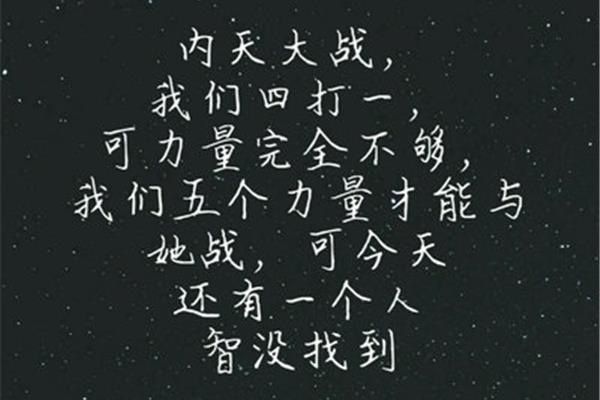 内天大战，
我们四打一，
可力量完全不够，
我们五个力量才能与
她战，可今天
还有一个人
智没找到